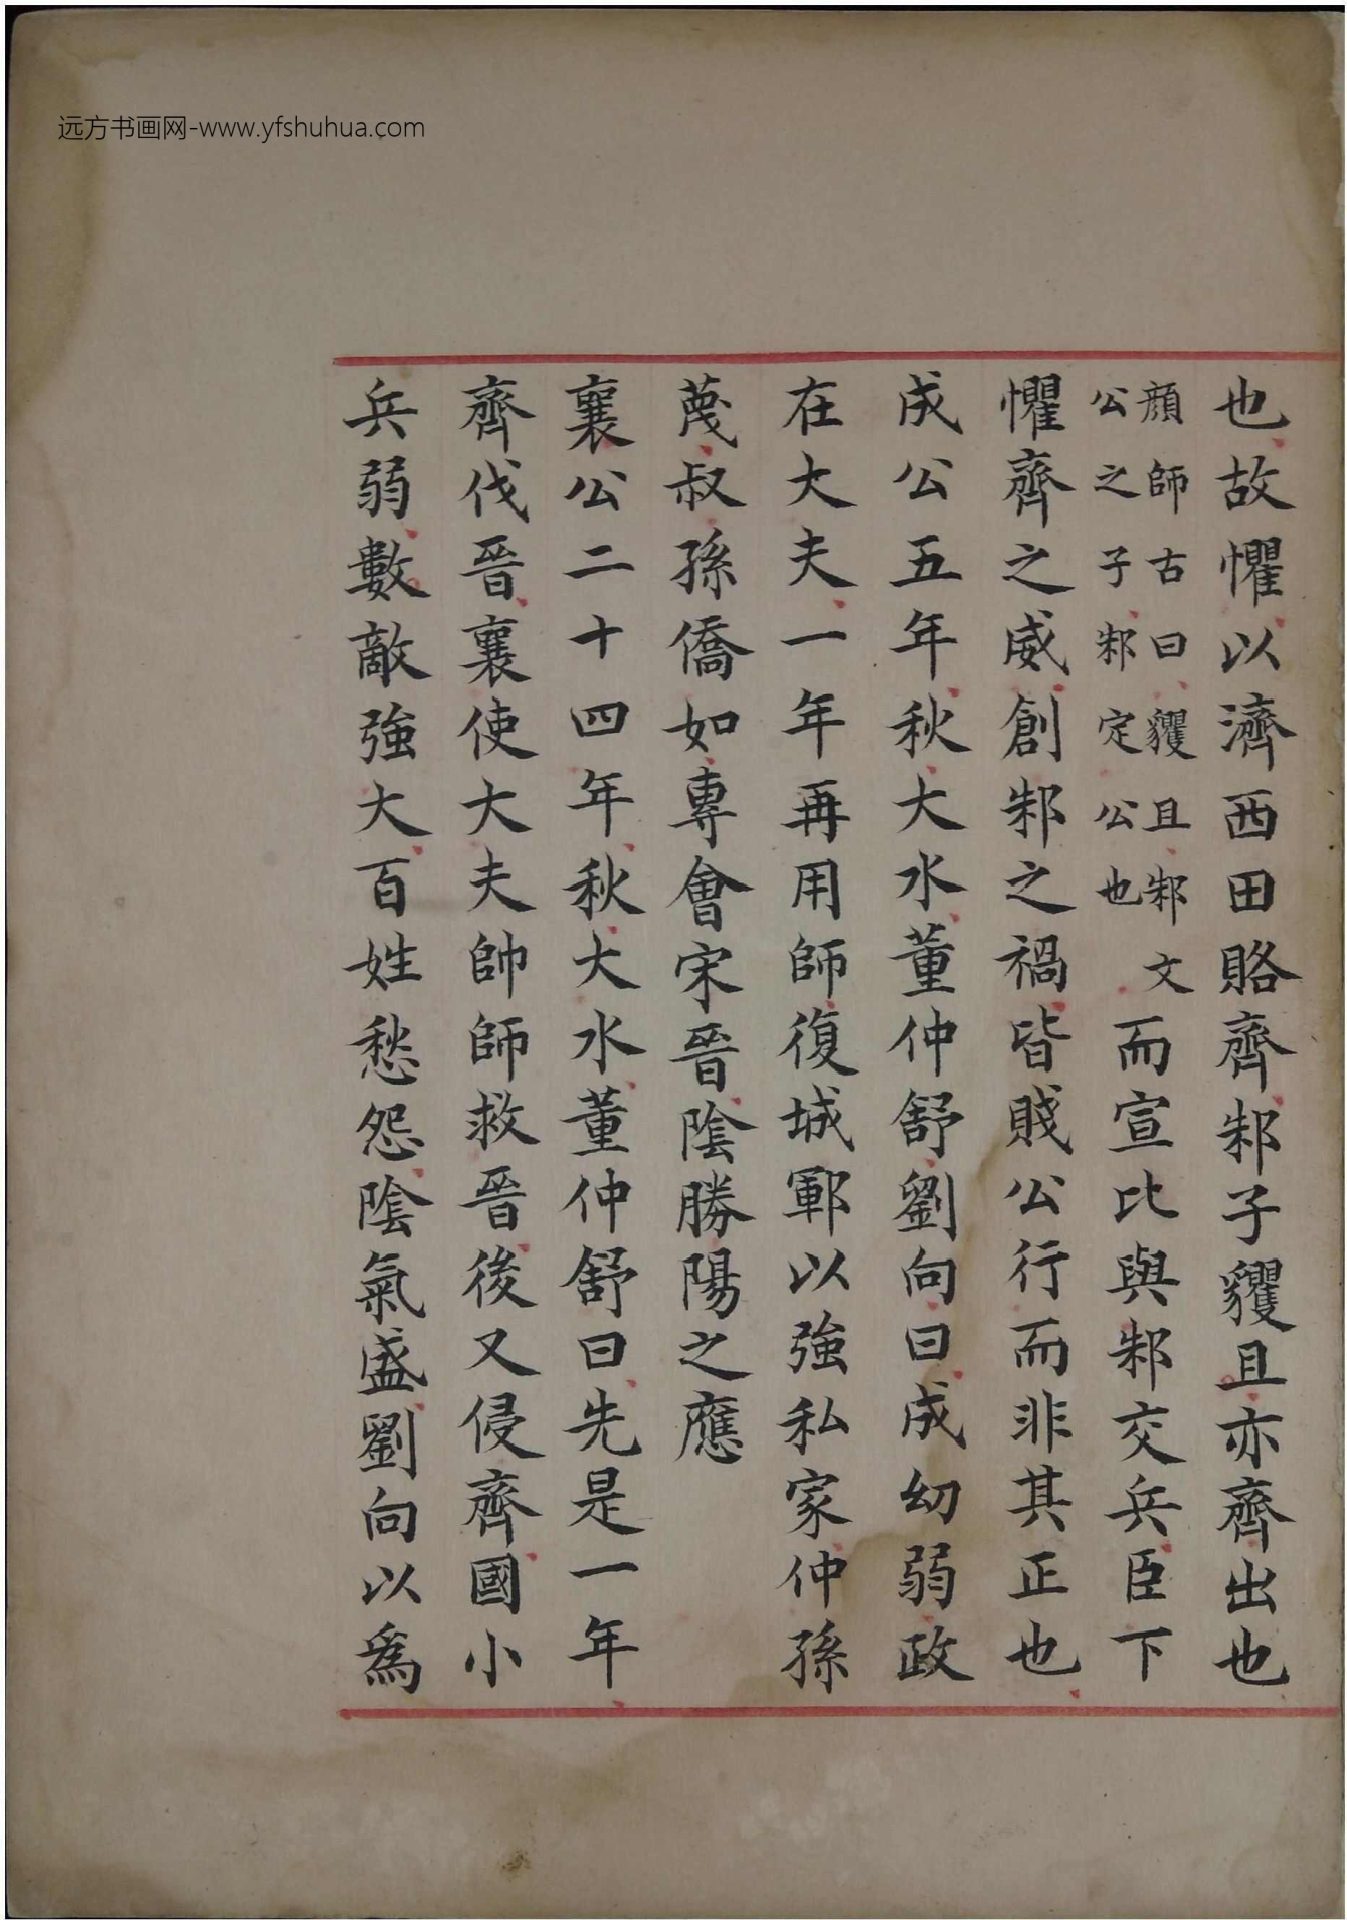 远方书画网-www.yfshuhua.com
也故懼以濟西田賂齊邾子貜且亦齊出也
顔師古曰貜且邾文
公之子邾定公也
而宣比與邾交兵臣下
懼齊之威創邾之禍皆賤公行而非其正也
成公五年秋大水董仲舒劉向曰成幼弱政
在大夫一年再用師復城鄆以強私家仲孫
蔑叔孫僑如專會宋晉陰勝陽之應
襄公二十四年秋大水董仲舒曰先是一年
齊伐晉襄使大夫帥師救晉後又侵齊國小
兵弱數敵強大百姓愁怨陰氣盛劉向以爲